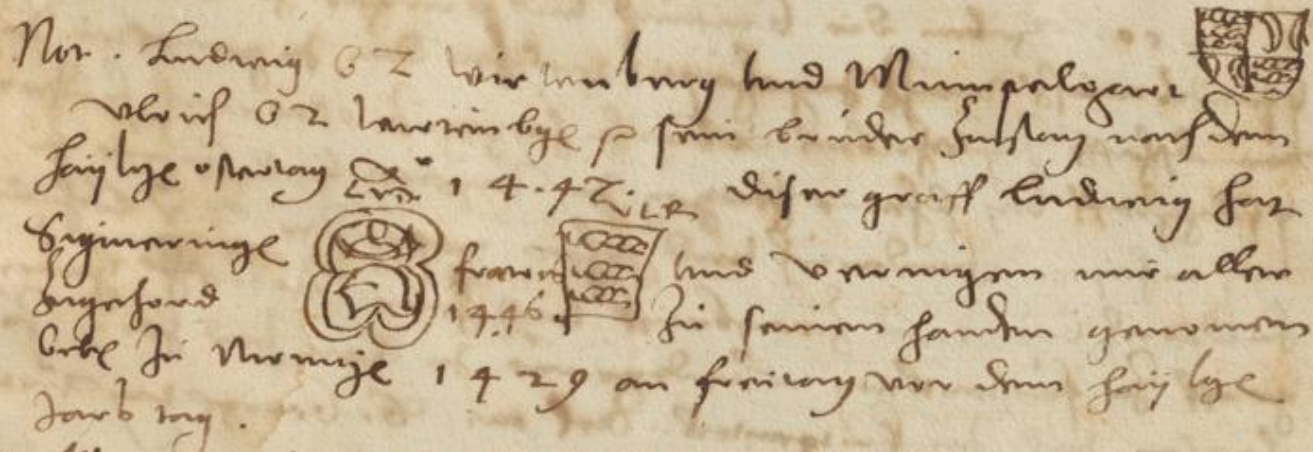 Not. Ludwig G Z Wirtenberg und Mümpelgart
Ulrich G Z Wirtembg sein bruder Zinstag nach dem
haylge ostertag 1 4 4 7. diser graff Ludwig hat
Sigmeringe frawen und Veringen mit aller
Zugehord 1446. Zu seinem handen genomen
Gebe Zu 1 4 2 9 an freitag vor dem haylge
Jars tag.